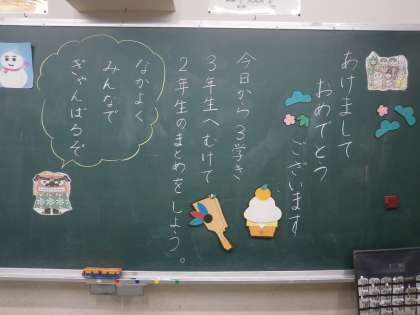 あけまして
おめでとう
ございます
今日から3学き
3年生へむけて
2年生のまとめをしよう。
なかよく
みんなで
ぎゃんばるぞ